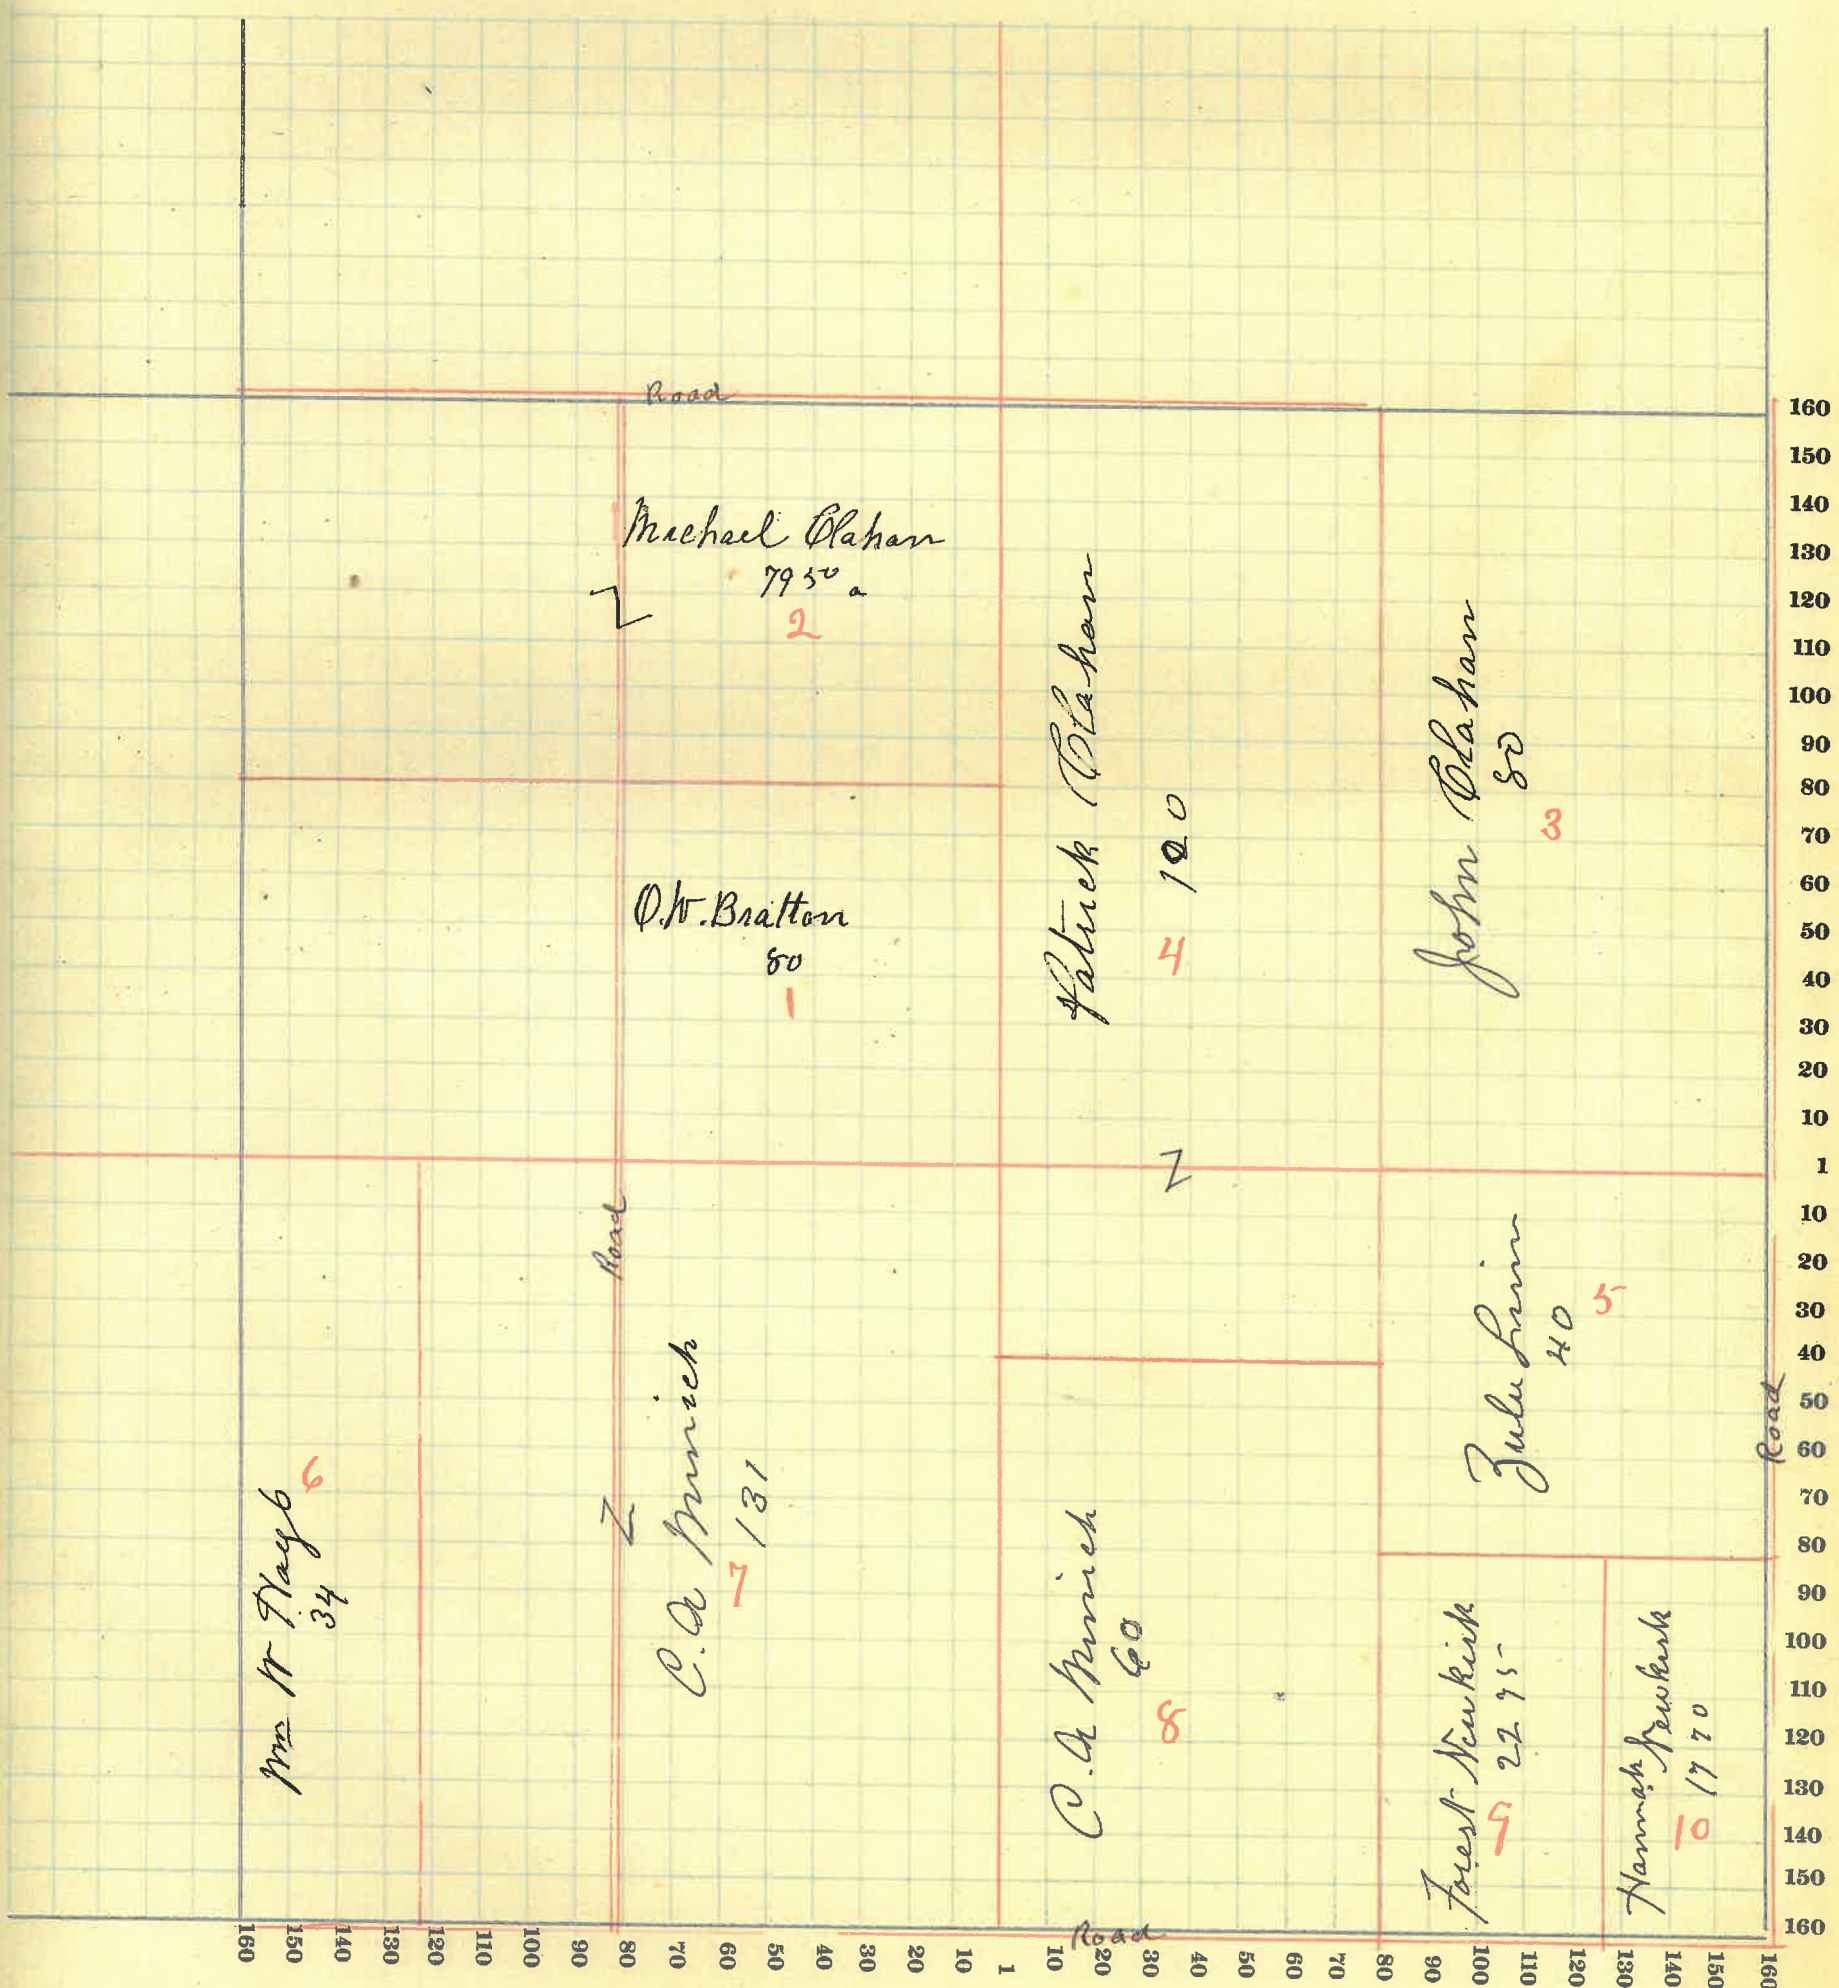 Road
Michael Clahan
79 50 a
2
O.W. Bratton
80
1
Patrick Clahan
120
4
John Clahan
80
3
Road
Zulu Linn
40
5
Road
6
34
C. A Minich
131
7
C. A Minich
60
8
Forest Newkirk
22 75
9
Hannah Newkirk
17 70
10
Road
160
150
140
130
120
110
100
90
80
70
60
50
40
30
20
10
1
10
20
30
40
50
60
70
80
90
100
110
120
130
140
150
160
160 150 140 130 120 110 100 90 80 70 60 50 40 30 20 10 1 10 20 30 40 50 60 70 80 90 100 110 120 130 140 150 160